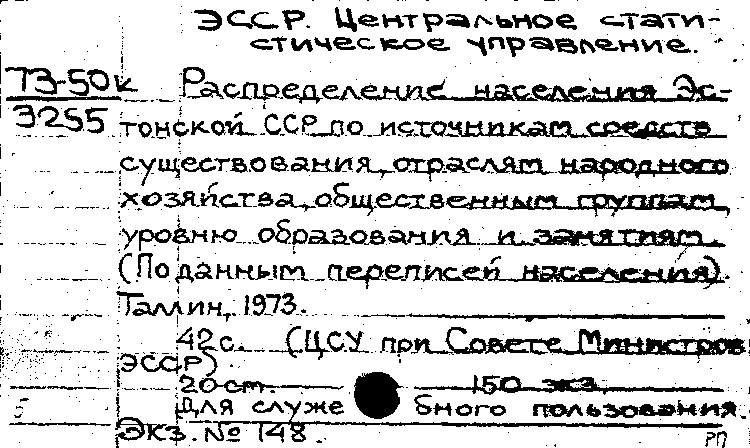 ЭССР. Центральное стати-
стическое управление.
73-50к
3255
Распределение населения Эс-
тонской ССР по источникам средств
существования, отраслям народного
хозяйства, общественным группам,
уровню образования и занятиям.
(По данным переписей населения).
Таллин, 1973.
42 с. (ЦСУ при Совете Министров
ЭССР)
20 см. 150 экз.
Для служебного пользования.
Экз. № 148.
РП